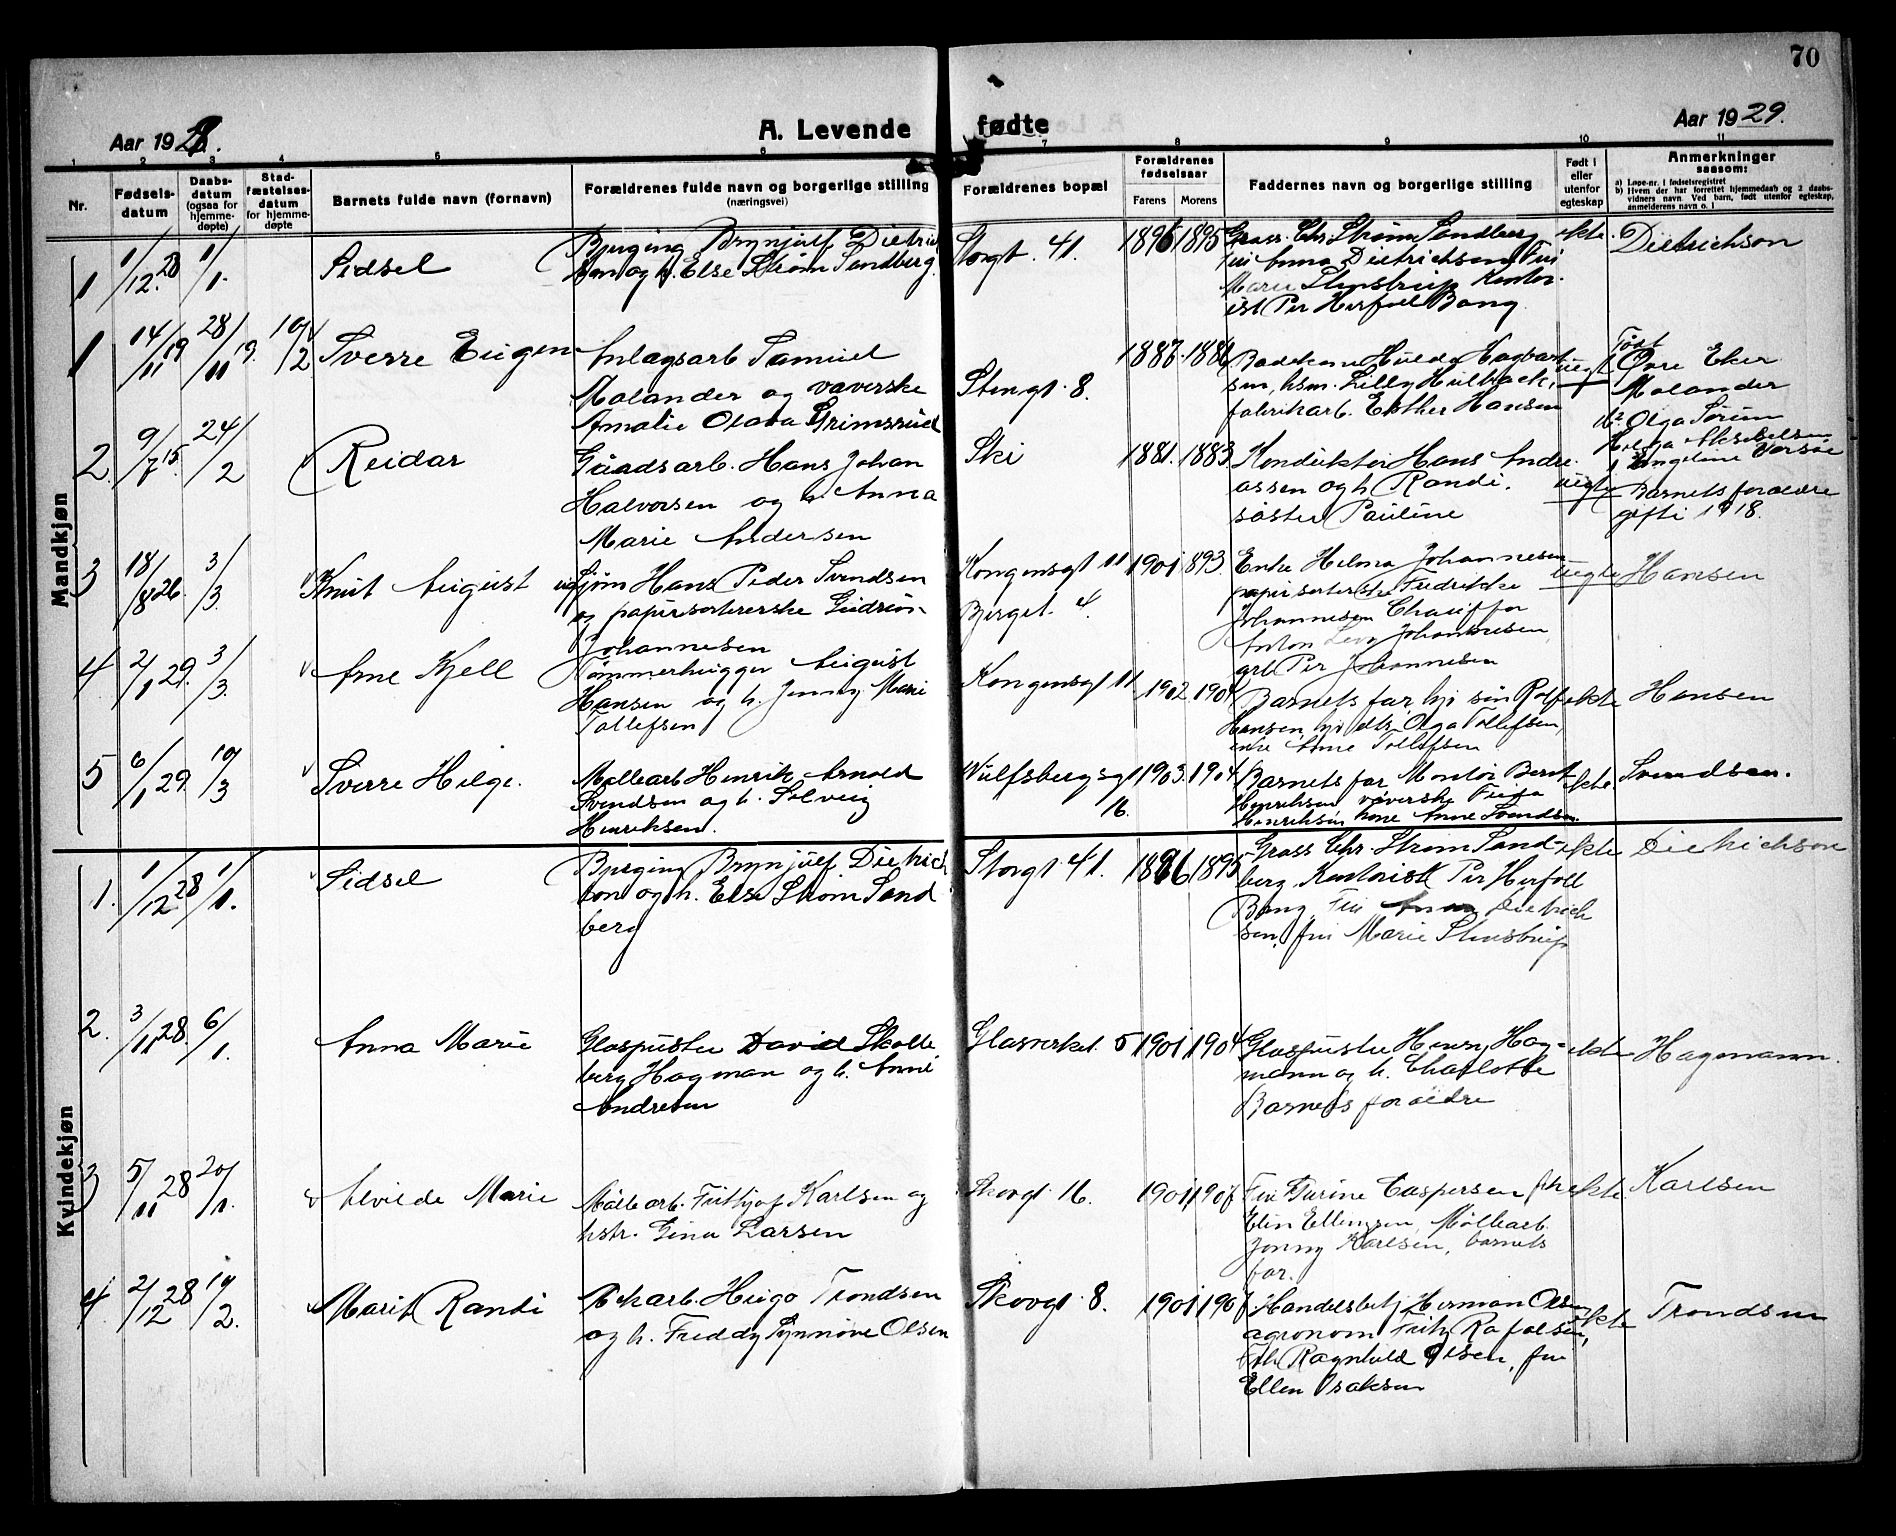 70
Aar 1928.
A. Levende fødte
Aar 1929.
1 2 3 4 5 6 7 8 9 10 11
Nr.
Fødsels-
datum
Daabs-
datum
(ogsaa for
hjemme-
døpte)
Stad-
fæstelses-
datum
for hjemme-
døpte
Barnets fulde navn (fornavn)
Forældrenes fulde navn og borgerlige stilling
(næringsvei)
Forældrenes bopæl
Forældrenes
fødselsaar
Farens Morens
Faddernes navn og borgerlige stilling
Født i
eller
utenfor
egteskap
Anmerkninger
saasom:
a) Løpe-nr. i fødselsregistret
b) Hvem der har forrettet hjemmedaab og 2 daabs-
vidners navn. Ved barn, født utenfor egteskap,
anmelderens navn o. l
Mandkjøn
1 1/12.28 1/1. Sidsel
Brynjulf Dietrich
son og h. Else Strøm Sandberg
Storgt. 41. 1896 1895
Gross. Chr. Strøm Sandberg
Fru Anna Dietrichson, Fru
Marie Stenstrup Kontor-
ist Per Herfoll Bang
ekte. Dietrichson
1 14/11 19 28/11 19. 10/2 Sverre Eugen
Anlagsarb Samuel
Molander og væverske
Amalie Olava Grimsrud
Stengt. 8.
Hulda Hagbart
sen, hsm. Lilly Hulback,
fabrikarb. Esther Hansen
uegte
Født
Øvre Eker
Molander
Olga Sørum
2. 9/7 15. 24/2 Reidar
Gaardsarb. Hans Johan
Halvorsen og h. Anna
Marie Andersen
Ski 1881. 1883
Konduktør Hans Andre
assen og h. Randi.
søster Pauline
uegte
Barnets foraeldre
gifti 1918.
3 18/8 26. 3/3. Knut August
Sjøm Hans Peder Svendsen
og papirsortererske Gudrun
Johannesen
Kongensgt 11 1901 1893.
Bjergt. 4.
Enke Helma Johannesen
papirsorterske Fredrikke
Johannesen Chauffør
Anton Levy Johannesen
grt Per Johannesen
uegte Hansen
4. 2/1 29. 3/3. Arne Kjell
Tømmerhugger August
Hansen og h. Jenny Marie
Tollefsen
Kongensgt 11 1902 1904
Barnets far, hj søn Rolf
Hansen, hj dtr. Olga Tollefsen,
enke Anne Tollefsen
ekte Hansen
5 6/1 29. 10/3 Sverre Helge.
Møllearb Henrik Arnold
Svendsen og h. Solveig
Henriksen.
Wulfsbergsgt
16.
1903. 1904
Barnets far Montør Bernt
Henriksen væverske
Henriksen kone Anne Svendsen
ekte. Svendsen.
Kvindekjøn
1. 1/12 28 1/1. Sidsel
Brynjulf Dietrich
son og h. Else Strøm Sand
berg
Storgt. 41. 1896 1895
Gross Chr Strøm Sand-
berg, Kontorist Per Herfoll
Bang, Fru Anna Dietrich
sen, fru Marie Stenstrup
ekte Dietrichson
2. 3/11 28. 6/1. Anna Marie
Glaspuster David Skolle
berg Hagman og h. Anne
Andresen
Glasverket. 5 1901 1904
Glaspuster Henry Hag-
mann og h. Charlotte
Barnets foraeldre
ekte Hagmann.
3 5/11 28 20/1. Alvilde Marie
Møllearb. Frithjof Karlsen og
hstr. Gina Larsen
Skovgt. 16. 1901
Fru Turine Caspersen frk
Elin Ellingsen, Møllearb.
Jonny Karlsen, barnets
far.
ekte Karlsen
4. 2/12 28 10/2. Marit Randi
Hugo Trondsen
og h. Freddy Synnøve Olsen
Skovgt. 8. 1901
Handelsbetj. Herman Olsen
agronom Fritz Rafalsen,
Frk Ragnhild Olsen, fru
Ellen Isaksen
ekte Trondsen